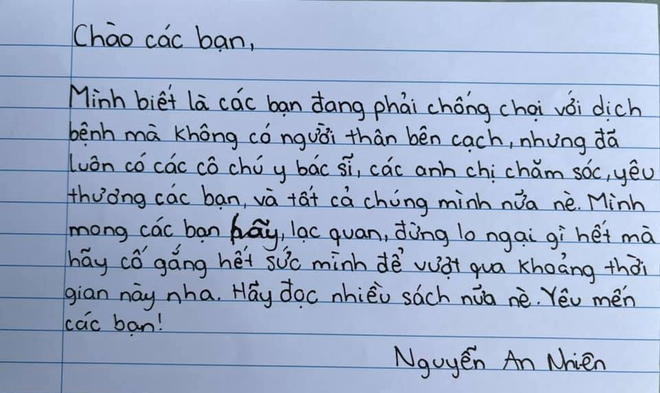 Chào các bạn,
Mình biết là các bạn đang phải chống chọi với dịch
bệnh mà không có người thân bên cạch, nhưng đã
luôn có các cô chú y bác sĩ, các anh chị chăm sóc, yêu
thương các bạn, và tất cả chúng mình nữa nè. Mình
mong các bạn hãy, lạc quan, đừng lo ngại gì hết mà
hãy cố gắng hết sức mình để vượt qua khoảng thời
gian này nha. Hãy đọc nhiều sách nữa nè. Yêu mến
các bạn!
Nguyễn An Nhiên